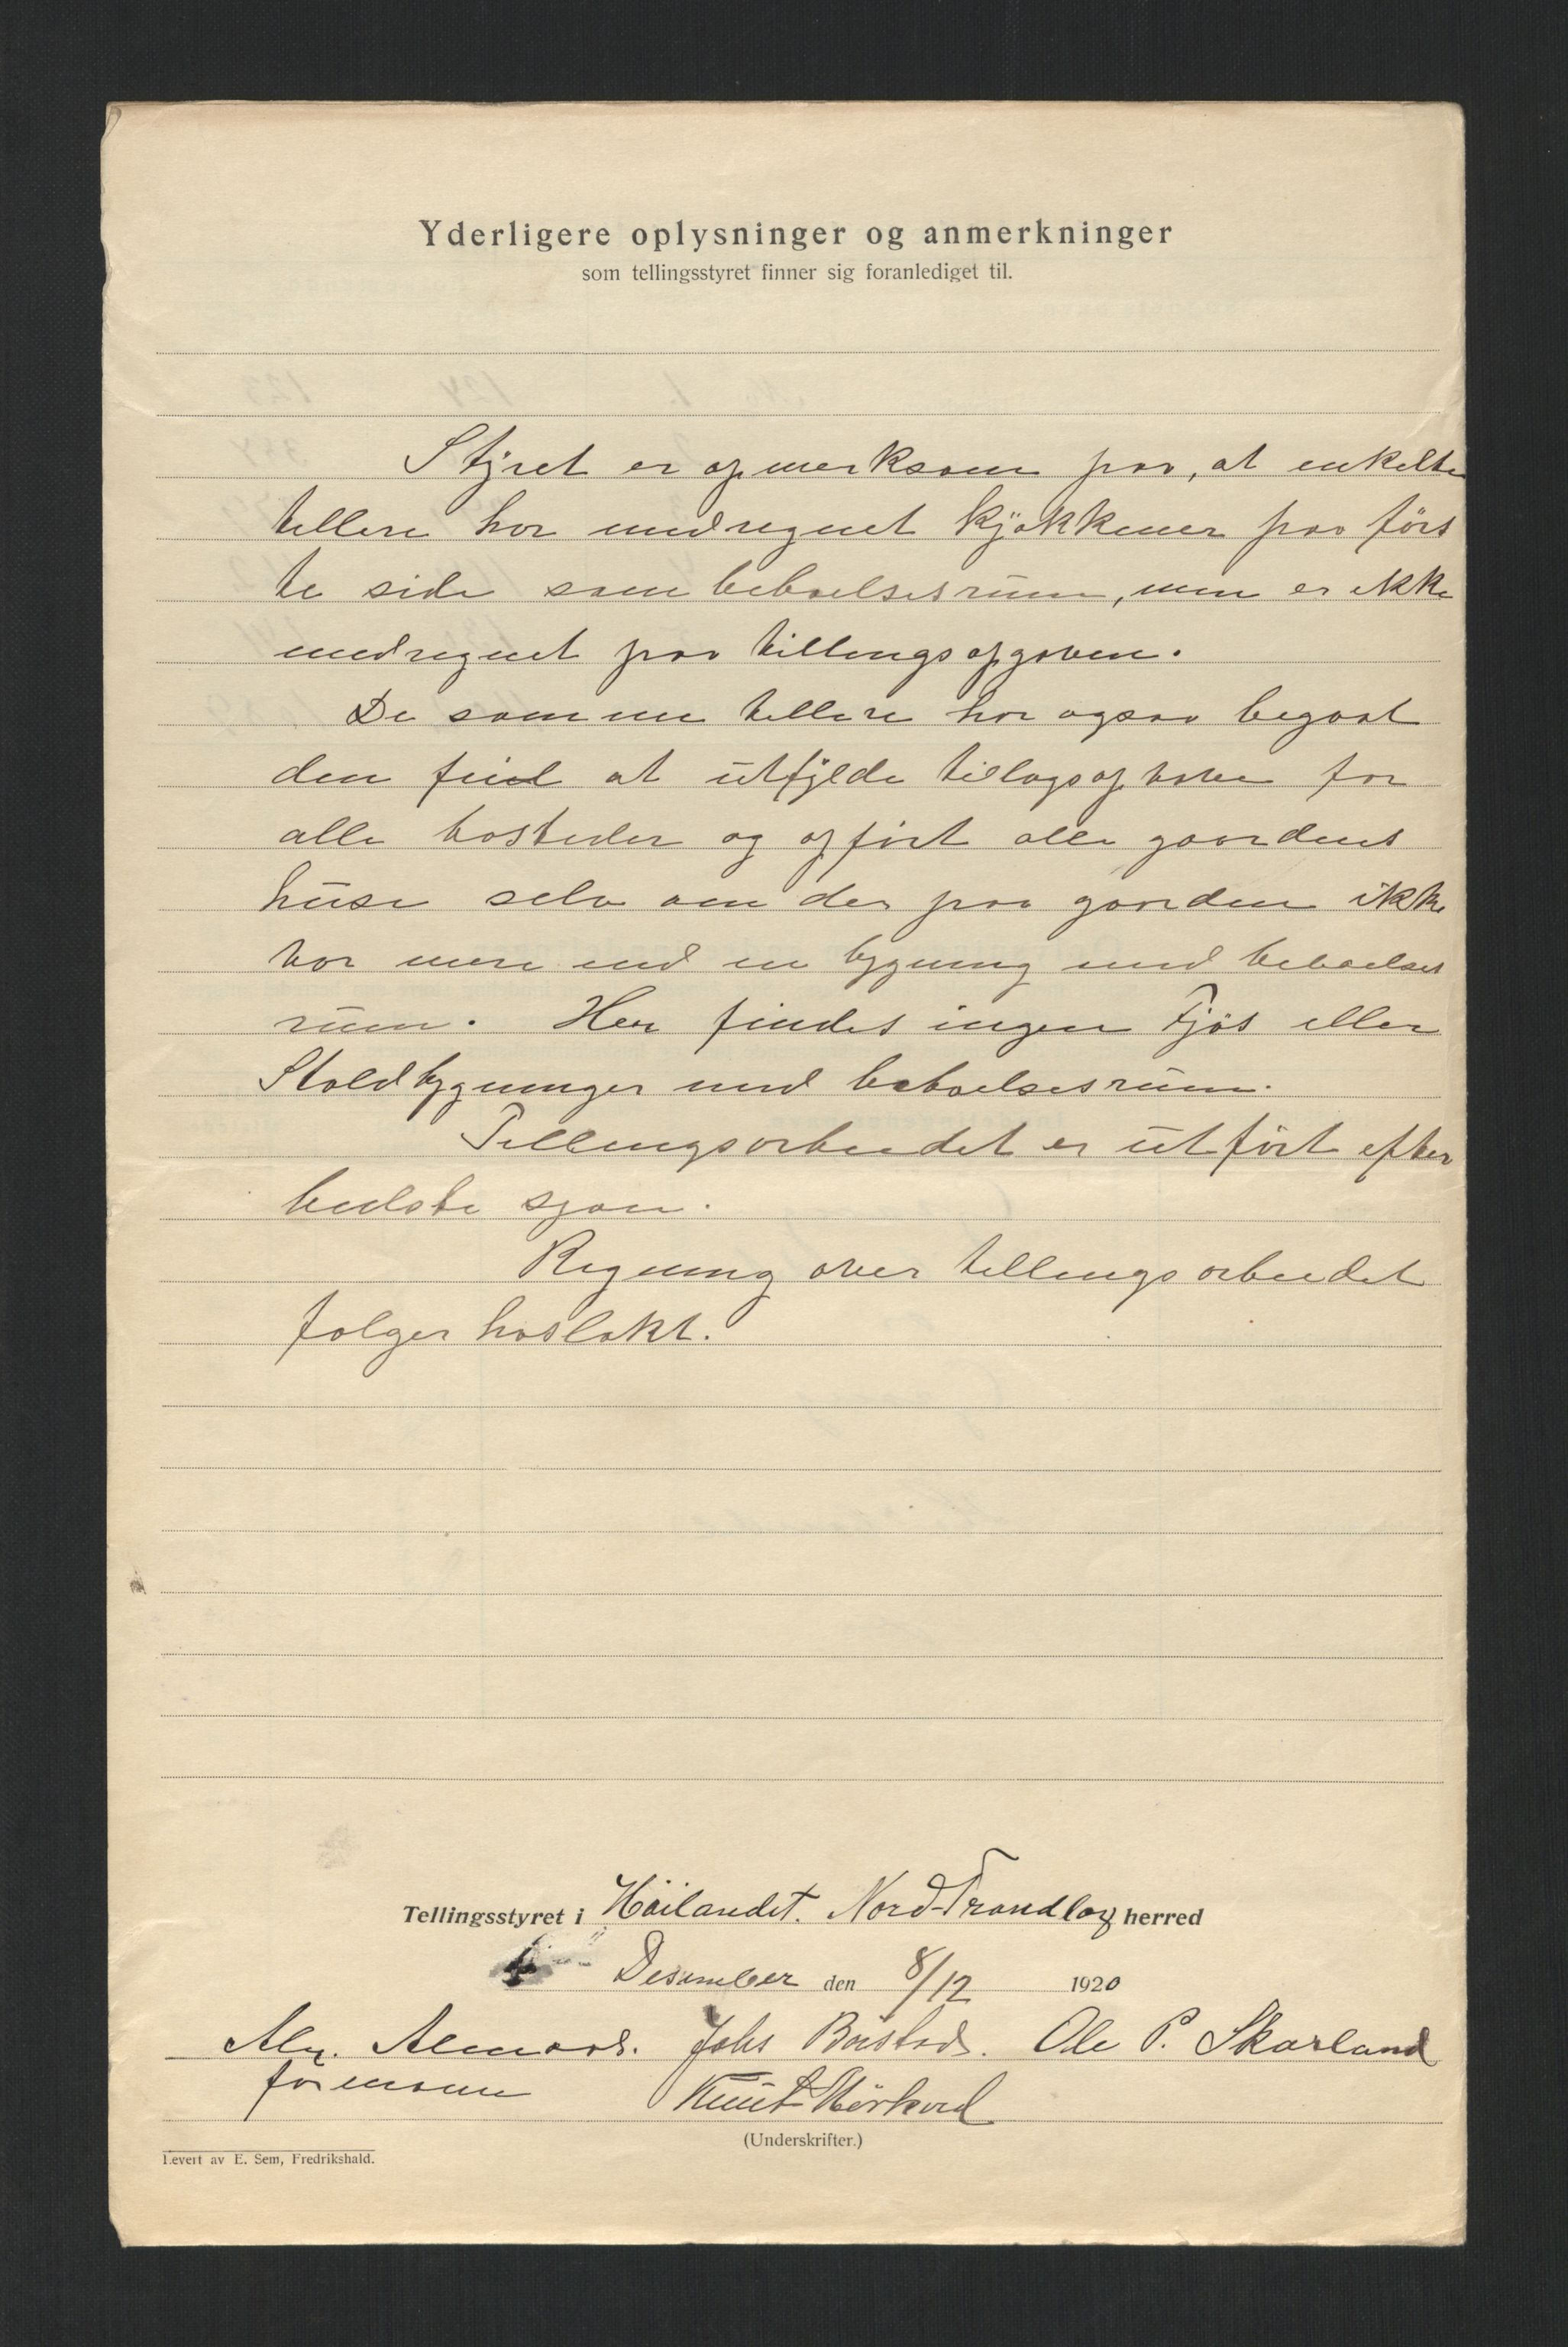 Yderligere oplysninger og anmerkninger
som tellingsstyret finner sig foranlediget til.
Styret er opmerksom paa, at enkelte
tellere har medregnet kjøkkener paa förs
te side som beboelsesrum, men er ikke
medregnet paa tellingsopgaven.
De samme tellere har ogsaa begaat
den feil at utfylde tillægsopgaven for
alle bosteder og opfört alle gaardens
huse selv om der paa gaarden ikke
var mere end en bygning med beboelses
rum. Her findes ingen Fjös eller
Staldbygninger med beboelsesrum.
Tellingsarbeidet er utfört efter
bedste sjøn.
Regning over tellingsarbeidet
følger hoslakt.
Tellingsstyret i Höilandet. Nord-Trøndlag herred
Desember den 8/12 1920
Alm. Johs Börstad. Ole P. Skarland
formann Knut Mörkved
(Underskrifter.)
Levert av E. Sem, Fredrikshald.